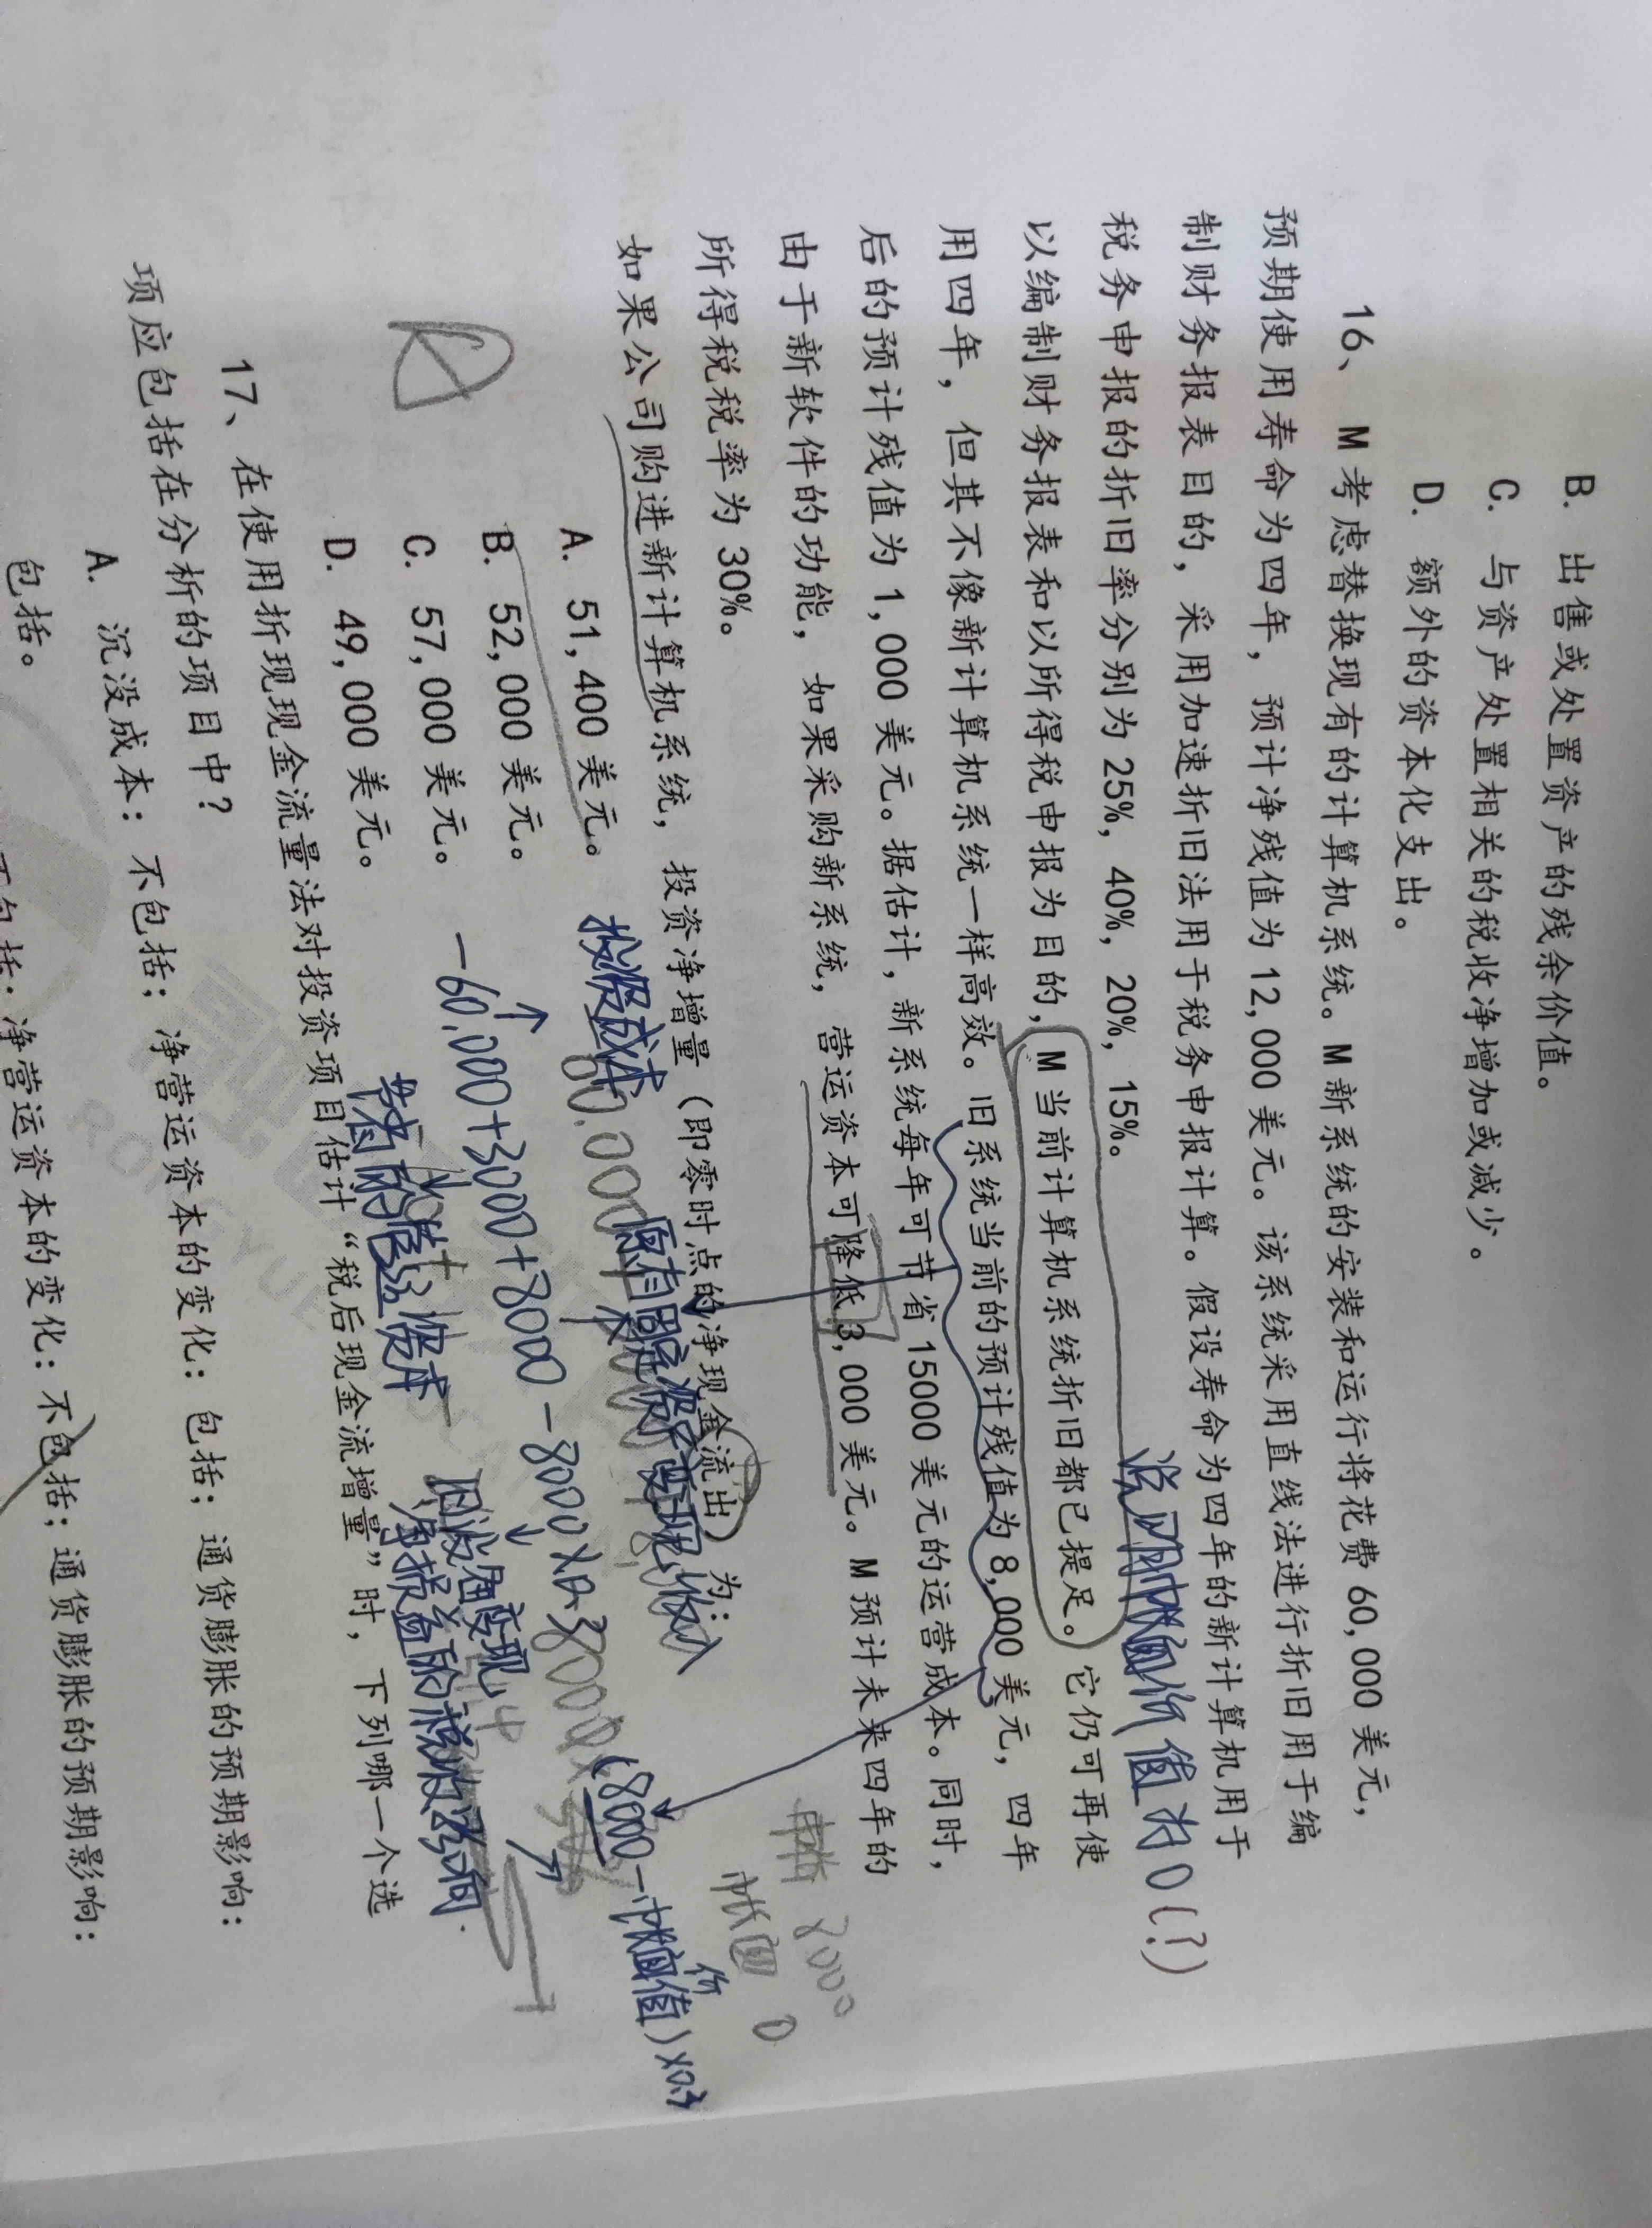 B. 出售或处置资产的残余价值。
C. 与资产处置相关的税收净增加或减少。
D. 额外的资本化支出。
16、M 考虑替换现有的计算机系统。M 新系统的安装和运行将花费 60,000 美元，
预期使用寿命为四年，预计净残值为 12,000 美元。该系统采用直线法进行折旧用于编
制财务报表目的，采用加速折旧法用于税务申报计算。假设寿命为四年的新计算机用于
税务申报的折旧率分别为 25%，40%，20%，15%。
说明账面价值为0(?)
以编制财务报表和以所得税申报为目的，M 当前计算机系统折旧都已提足。它仍可再使
用四年，但其不像新计算机系统一样高效。旧系统当前的预计残值为 8,000 美元，四年
后的预计残值为 1,000 美元。据估计，新系统每年可节省 15000 美元的运营成本。同时，
由于新软件的功能，如果采购新系统，营运资本可降低 3,000 美元。M 预计未来四年的
所得税税率为 30%。
8000
账面 0
如果公司购进新计算机系统，投资净增量（即零时点的净现金流出）为：
原有固定资产变现收入
(8000-账面价值)×0.3
A. 51,400 美元。
投资成本
60,000
B. 52,000 美元。
-60,000+3000+8000-8000×0.3
C. 57,000 美元。
垫付的营运资本
旧设备变现
净损益的税收影响.
D. 49,000 美元。
A
17、在使用折现现金流量法对投资项目估计“税后现金流增量”时，下列哪一个选
项应包括在分析的项目中？
A. 沉没成本：不包括；净营运资本的变化：包括；通货膨胀的预期影响：
包括。
不包括；净营运资本的变化：不包括；通货膨胀的预期影响：